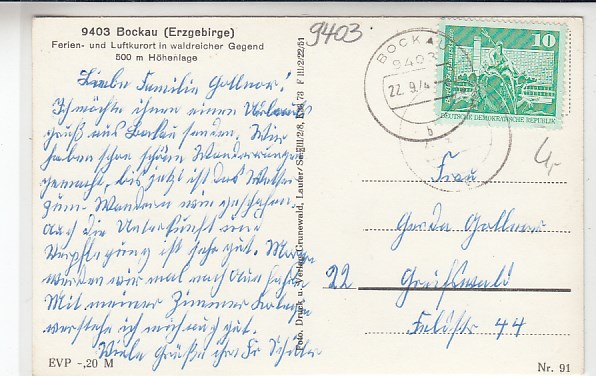 9403 Bockau (Erzgebirge)
Ferien- und Luftkurort in waldreicher Gegend
500 m Höhenlage
Liebe Familie Gollner!
Ich möchte ihnen einen Urlaubs
gruß aus Bockau senden. Wir
haben schon schöne Wanderungen
gemacht, bis jetzt ist das Wetter
zum Wandern wie geschaffen.
Auch die Unterkunft und
Verpflegung ist sehr gut. Morgen
werden wir mal nach Aue fahren.
Mit meiner Zimmer Kollegin
verstehe ich mich auch gut.
Viele Grüße ihre Fr Schüler
EVP -,20 M
Foto, Druck u. Verlag Grunewald, Lauter/Sa. III/2/8, 73 F III/2/22/51
9403
BOCKAU
9403
22.9.74
b
10
DEUTSCHE DEMOKRATISCHE REPUBLIK
4,-
Frau
Gerda Gollner
22 Greifswald
Feldstr 44
Nr. 91